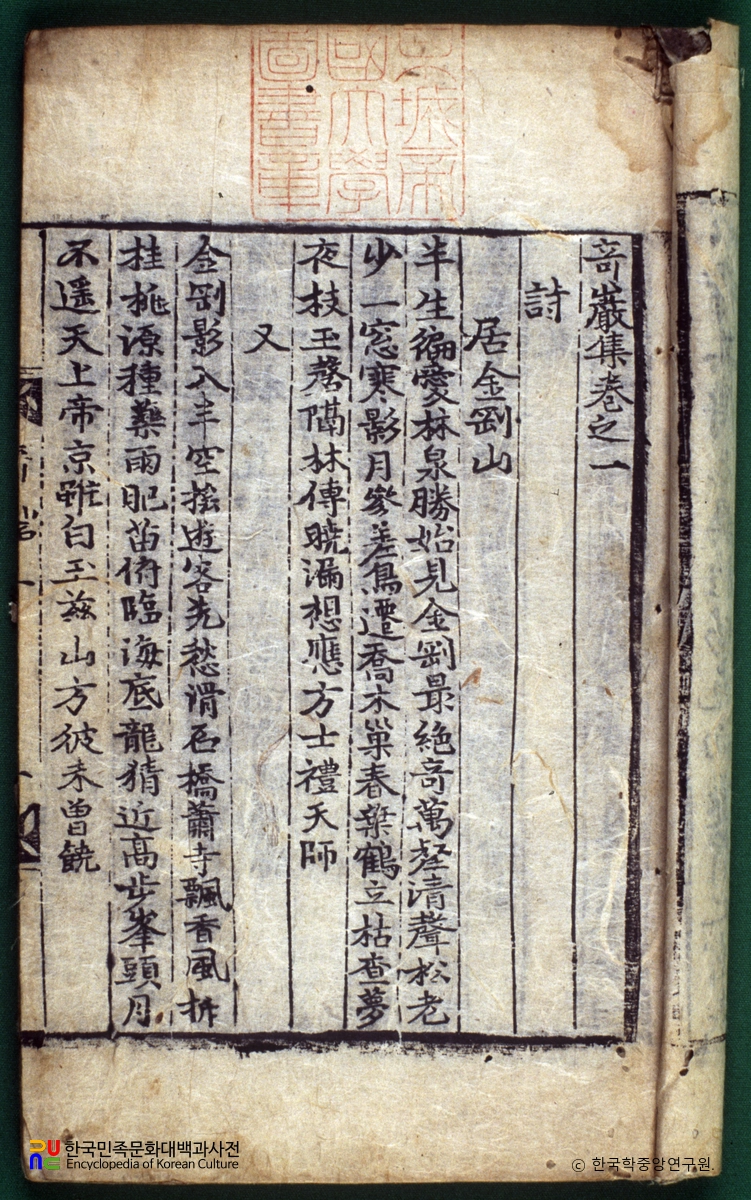 京城帝
國大學
圖書章
奇巖集卷之一
詩
居金剛山
半生偏愛林泉勝始見金剛最絶奇萬壑清聲松老
少一窓寒影月參差鳥遷喬木巢春葉鶴立枯査夢
夜枝玉磬隔林傳曉漏想應方士禮天師
又
金剛影入半空搖遊客先愁滑石橋蕭寺飄香風拆
桂桃源種藥雨肥苗俯臨海底龍猜近高步峯頭月
不遥天上帝京雖白玉玆山方彼未曾饒
한국민족문화대백과사전
Encyclopedia of Korean Culture
© 한국학중앙연구원